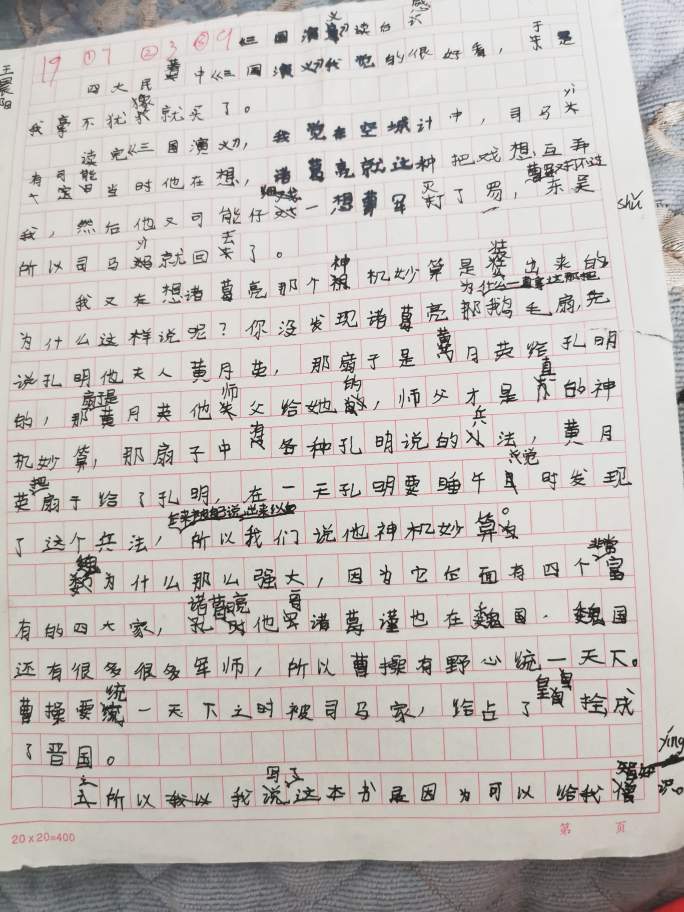 19 ① 7 ② 3 ③ 9 《三国演义》读后感
王晨阳
四大民著中《三国演义》我觉的很好看，于是
我豪不犹豫就买了。
读完《三国演义》，我觉在空城计中，司马yi
有可能当时他在想，诸葛亮就这种把戏想互弄
我，然后他又可能仔细一想曹军灭打了蜀，东吴
shǔ
所以司马就回去了。
我又在想诸葛亮那个神机妙算是装出来的
为什么这样说呢？你没发现诸葛亮那鹅毛扇，先
说孔明他夫人黄月英，那扇子是黄月英给孔明
的，那扇子是黄月英他师父给她的，师父才是真的神
机妙算，那扇子中有各种孔明说的兵法，黄月
英把扇子给了孔明，在一天孔明要睡午觉时发现
了这个兵法，所以我们说他神机妙算。
魏为什么那么强大，因为它位面有四个非常富
有的四大家，诸葛亮他哥诸葛谨也在魏国．魏国
还有很多很多军师，所以曹操有野心统一天下。
曹操要统一天下之时被司马家，给占了
了晋国。
所以我写了这本书是因为可以给我
识。
yíng
20×20=400
第 页